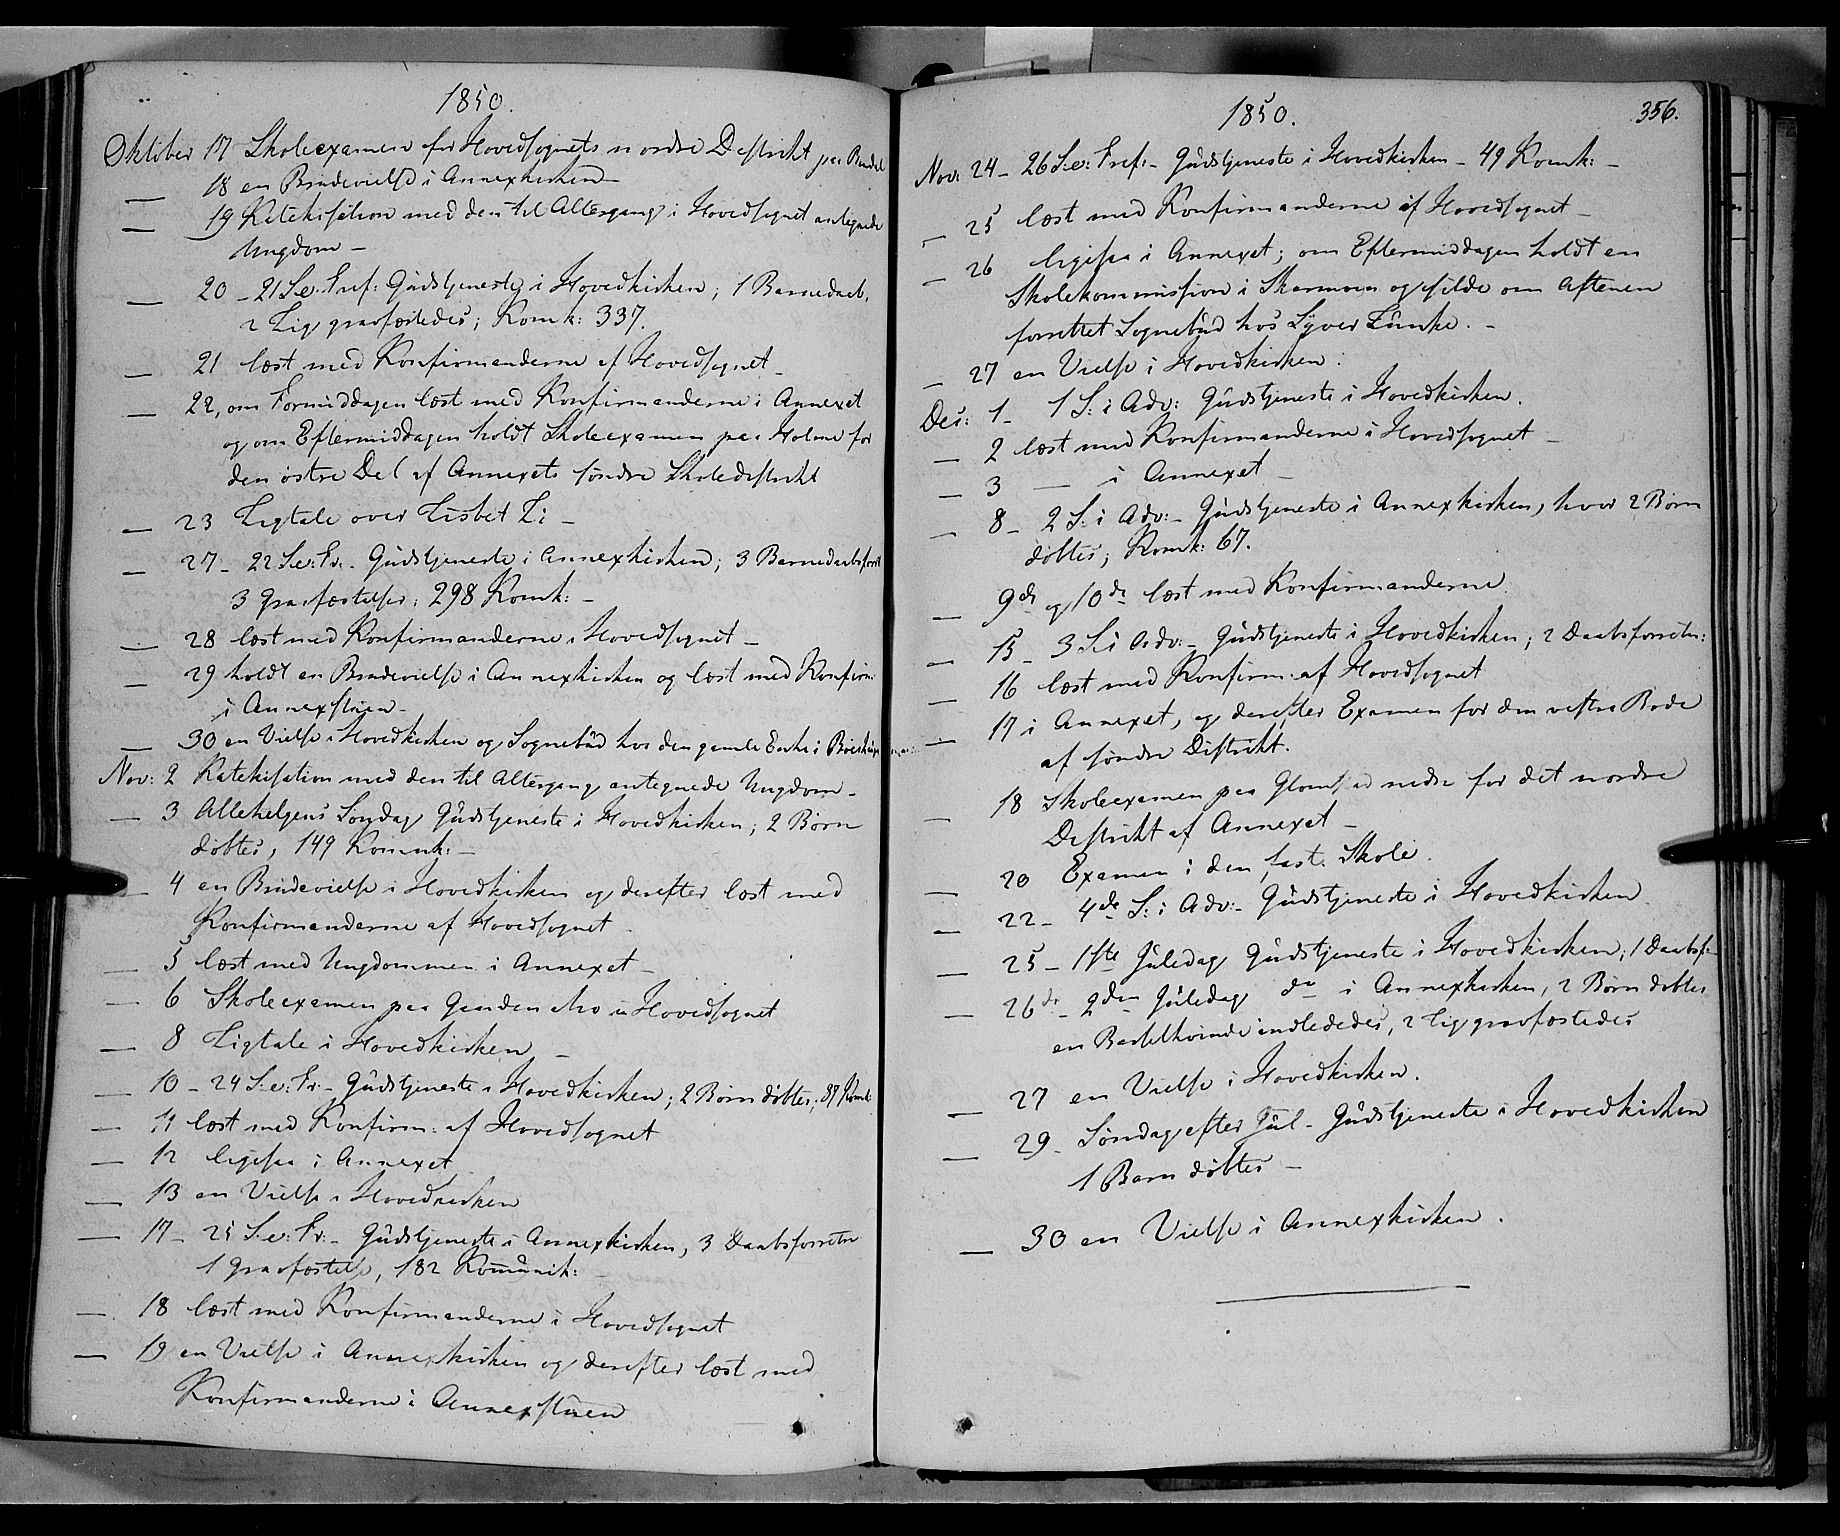 1850.
Oktober 17 Skoleexamen for Hovedsognets nordre Distrikt paa
— 18 en Brudevielse i Annexkirken —
— 19 Katekisation med den til Altergang i Hovedsognet antegnede
Ungdom —
— 20 – 21 S. e. Tref: Gudstjeneste i Hovedkirken; 1 Barnedaab,
2 Lig gravfæstedes; Komk: 337.
— 21 læst med Konfirmanderne af Hovedsognet —
— 22, om Formiddagen læst med Konfirmanderne i Annexet
og om Eftermiddagen holdt Skoleexamen paa Holme for
den østre Del af Annexets søndre Skoledistrikt
— 23 Ligtale over Lisbet Li —
— 27 – 22 S. e: Tr: – Gudstjeneste i Annexkirken; 3 Barnedaabsforret
3 Gravfæstelser; 298 Komk: —
— 28 læst med Konfirmanderne i Hovedsognet —
— 29 holdt en Brudevielse i Annexkirken og læst med Konfirm:
i Annexstuen —
— 30 en Vielse i Hovedkirken og Sognebud hos den gamle Enke i
Nov: 2 Katekisation med den til Altergang antegnede Ungdom —
— 3 Allehelgens Søndag Gudstjeneste i Hovedkirken; 2 Børn
døbtes, 149 Kommk: —
— 4 en Brudevielse i Hovedkirken og derefter læst med
Konfirmanderne af Hovedsognet
— 5 læst med Ungdommen i Annexet —
— 6 Skoleexamen paa i Hovedsognet
— 8 Ligtale i Hovedkirken —
— 10 – 24 S. e: Tr: – Gudstjeneste i Hovedkirken; 2 Børn døbtes; 87 Komk:
— 11 læst med Konfirm: af Hovedsognet
— 12 ligesaa i Annexet
— 13 en Vielse i Hovedkirken
— 17 – 25 S. e: Tr: – Gudstjeneste i Annexkirken, 3 Daabsforretn
1 Gravfæstelse, 182 Kommunik: —
— 18 læst med Konfirmanderne i Hovedsognet
— 19 en Vielse i Annexkirken og derefter læst med
Konfirmanderne i Annexstuen
1850.
356.
Nov: 24 – 26 S. e: Tref: – Gudstjeneste i Hovedkirken – 49 Komk: —
— 25 læst med Konfirmanderne af Hovedsognet —
— 26 ligesaa i Annexet; om Eftermiddagen holdt en
Skolekommission i og silde om Aftenen
forrettet Sognebud hos Syver Lunke. —
— 27 en Vielse i Hovedkirken.
Dec: 1 – 1 S: i Adv: Gudstjeneste i Hovedkirken.
— 2 læst med Konfirmanderne i Hovedsognet —
— 3 — i Annexet —
— 8 – 2 S: i Adv: – Gudstjeneste i Annexkirken, hvor 2 Børn
døbtes; Komk: 67.
— 9de og 10de læst med Konfirmanderne.
— 15 – 3 S. i Adv: – Gudstjeneste i Hovedkirken; 2 Daabsforretn:
— 16 læst med Konfirm: af Hovedsognet
— 17 i Annexet, og derefter Examen for den vestre Rode
af søndre Distrikt.
— 18 Skoleexamen paa nedre for det nordre
Distrikt af Annexet —
— 20 Examen i den fast: Skole.
— 22 – 4de S: i Adv: – Gudstjeneste i Hovedkirken.
— 25 – 1ste Juledag Gudstjeneste i Hovedkirken; 1 Daabsf:
— 26de – 2den Juledag do i Annexkirken, 2 Børn døbtes
en Barselkvinde indlededes, 2 Lig gravfæstedes
— 27 en Vielse i Hovedkirken.
— 29 – Søndag efter Jul – Gudstjeneste i Hovedkirken
1 Barn døbtes —
— 30 en Vielse i Annexkirken.